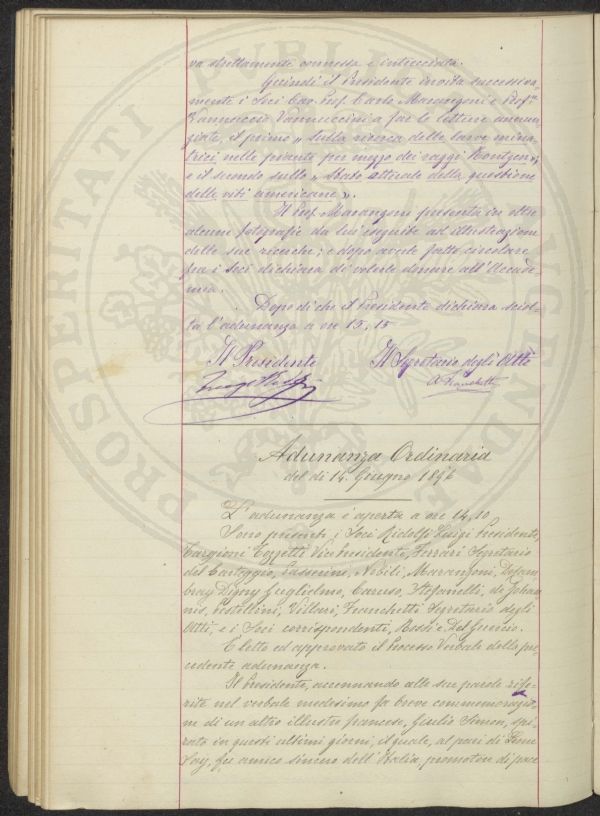 va strettamente connessa e intrecciata.
Quindi il Presidente invita successiva-
mente i Soci Cav. Prof. Carlo Marangoni e Profr
Vannuccio Vannuccini a fare le letture annun-
ziate, il primo „ sulla ricerca delle larve mina-
trici nelle piante per mezzo dei raggi Röntgen„
e il secondo sullo „ Stato attuale della questione
delle viti americane „.
Il Prof. Marangoni presenta in oltre
alcune fotografie da lui eseguite ad illustrazione
delle sue ricerche; e dopo averle fatte circolare
fra i Soci dichiara di volerle donare all'Accade-
mia.
Dopo di che il Presidente dichiara sciol-
ta l'adunanza a ore 15,15
Il Presidente Il Segretario degli Atti
A Franchetti
Adunanza Ordinaria
del dì 14. Giugno 1896
L'adunanza è aperta a ore 14,10
Sono presenti i Soci Ridolfi Luigi Presidente,
Targioni Tozzetti Vice Presidente, Ferrari Segretario
del Carteggio, Passerini, Nobili, Marangoni, Desam-
bray Digny Guglielmo, Caruso, Stefanelli, de Johan-
nis, Pestellini, Villari, Franchetti Segretario degli
Atti, e i Soci corrispondenti, Rossi e Del Guercio.
È letto ed approvato il Processo Verbale della pre-
cedente adunanza.
Il Presidente, accennando alle sue parole rife-
rite nel verbale medesimo fa breve commemorazio-
ne di un altro illustre francese, Giulio Simon, spi-
rato in questi ultimi giorni, il quale, al pari di Leone
Say, fu amico sincero dell'Italia, promotore di pace
PROSPERITATI PUBLICAE AUGENDAE